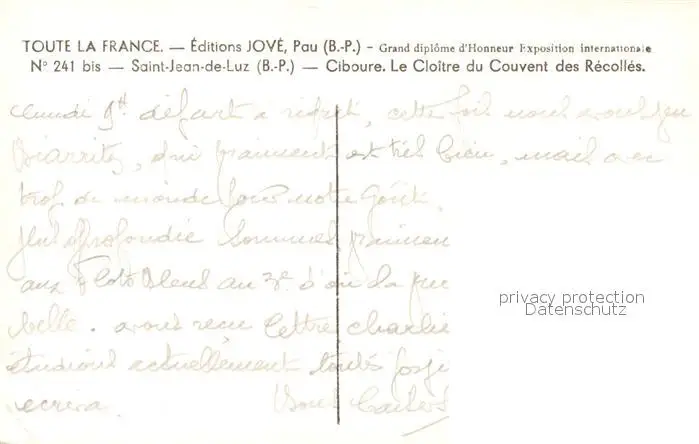 TOUTE LA FRANCE. — Éditions JOVÉ, Pau (B.-P.) - Grand diplôme d'Honneur Exposition internationale
N° 241 bis — Saint-Jean-de-Luz (B.-P.) — Ciboure. Le Cloître du Couvent des Récollés.
départ à regret, cette fois nous avons
Biarritz, qui vraiment est très bien, mais avec
trop de monde pour notre goût.
sommes
aux Flots Bleus au 3e d'où la vue
belle. avons reçu lettre charlie
étudions actuellement
ecrira. Bons baisers
privacy protection
Datenschutz